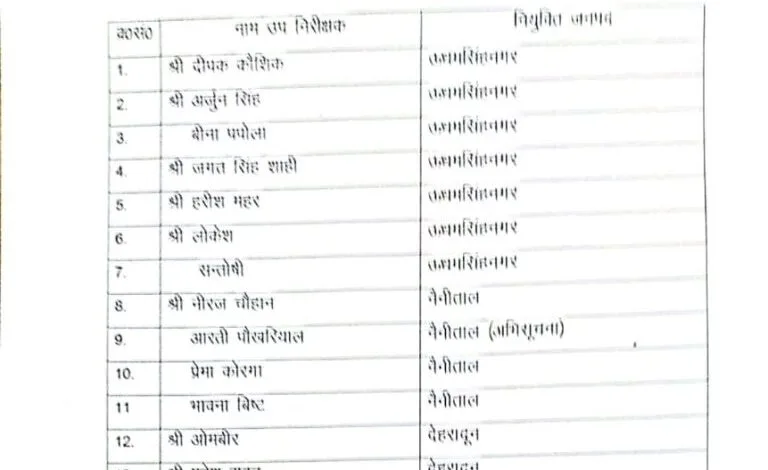 क०सं० नाम उप निरीक्षक नियुक्ति जनपद
1. श्री दीपक कौशिक ऊधमसिंहनगर
2. श्री अर्जुन सिंह ऊधमसिंहनगर
3. बीना पपोला ऊधमसिंहनगर
4. श्री जगत सिंह शाही ऊधमसिंहनगर
5. श्री हरीश महर ऊधमसिंहनगर
6. श्री लोकेश ऊधमसिंहनगर
7. सन्तोषी ऊधमसिंहनगर
8. श्री नीरज चौहान नैनीताल
9. आरती पौखरियाल नैनीताल (अभिसूचना)
10. प्रेमा कोरगा नैनीताल
11 भावना बिष्ट नैनीताल
12. श्री ओमबीर देहरादून
श्री देहरादून